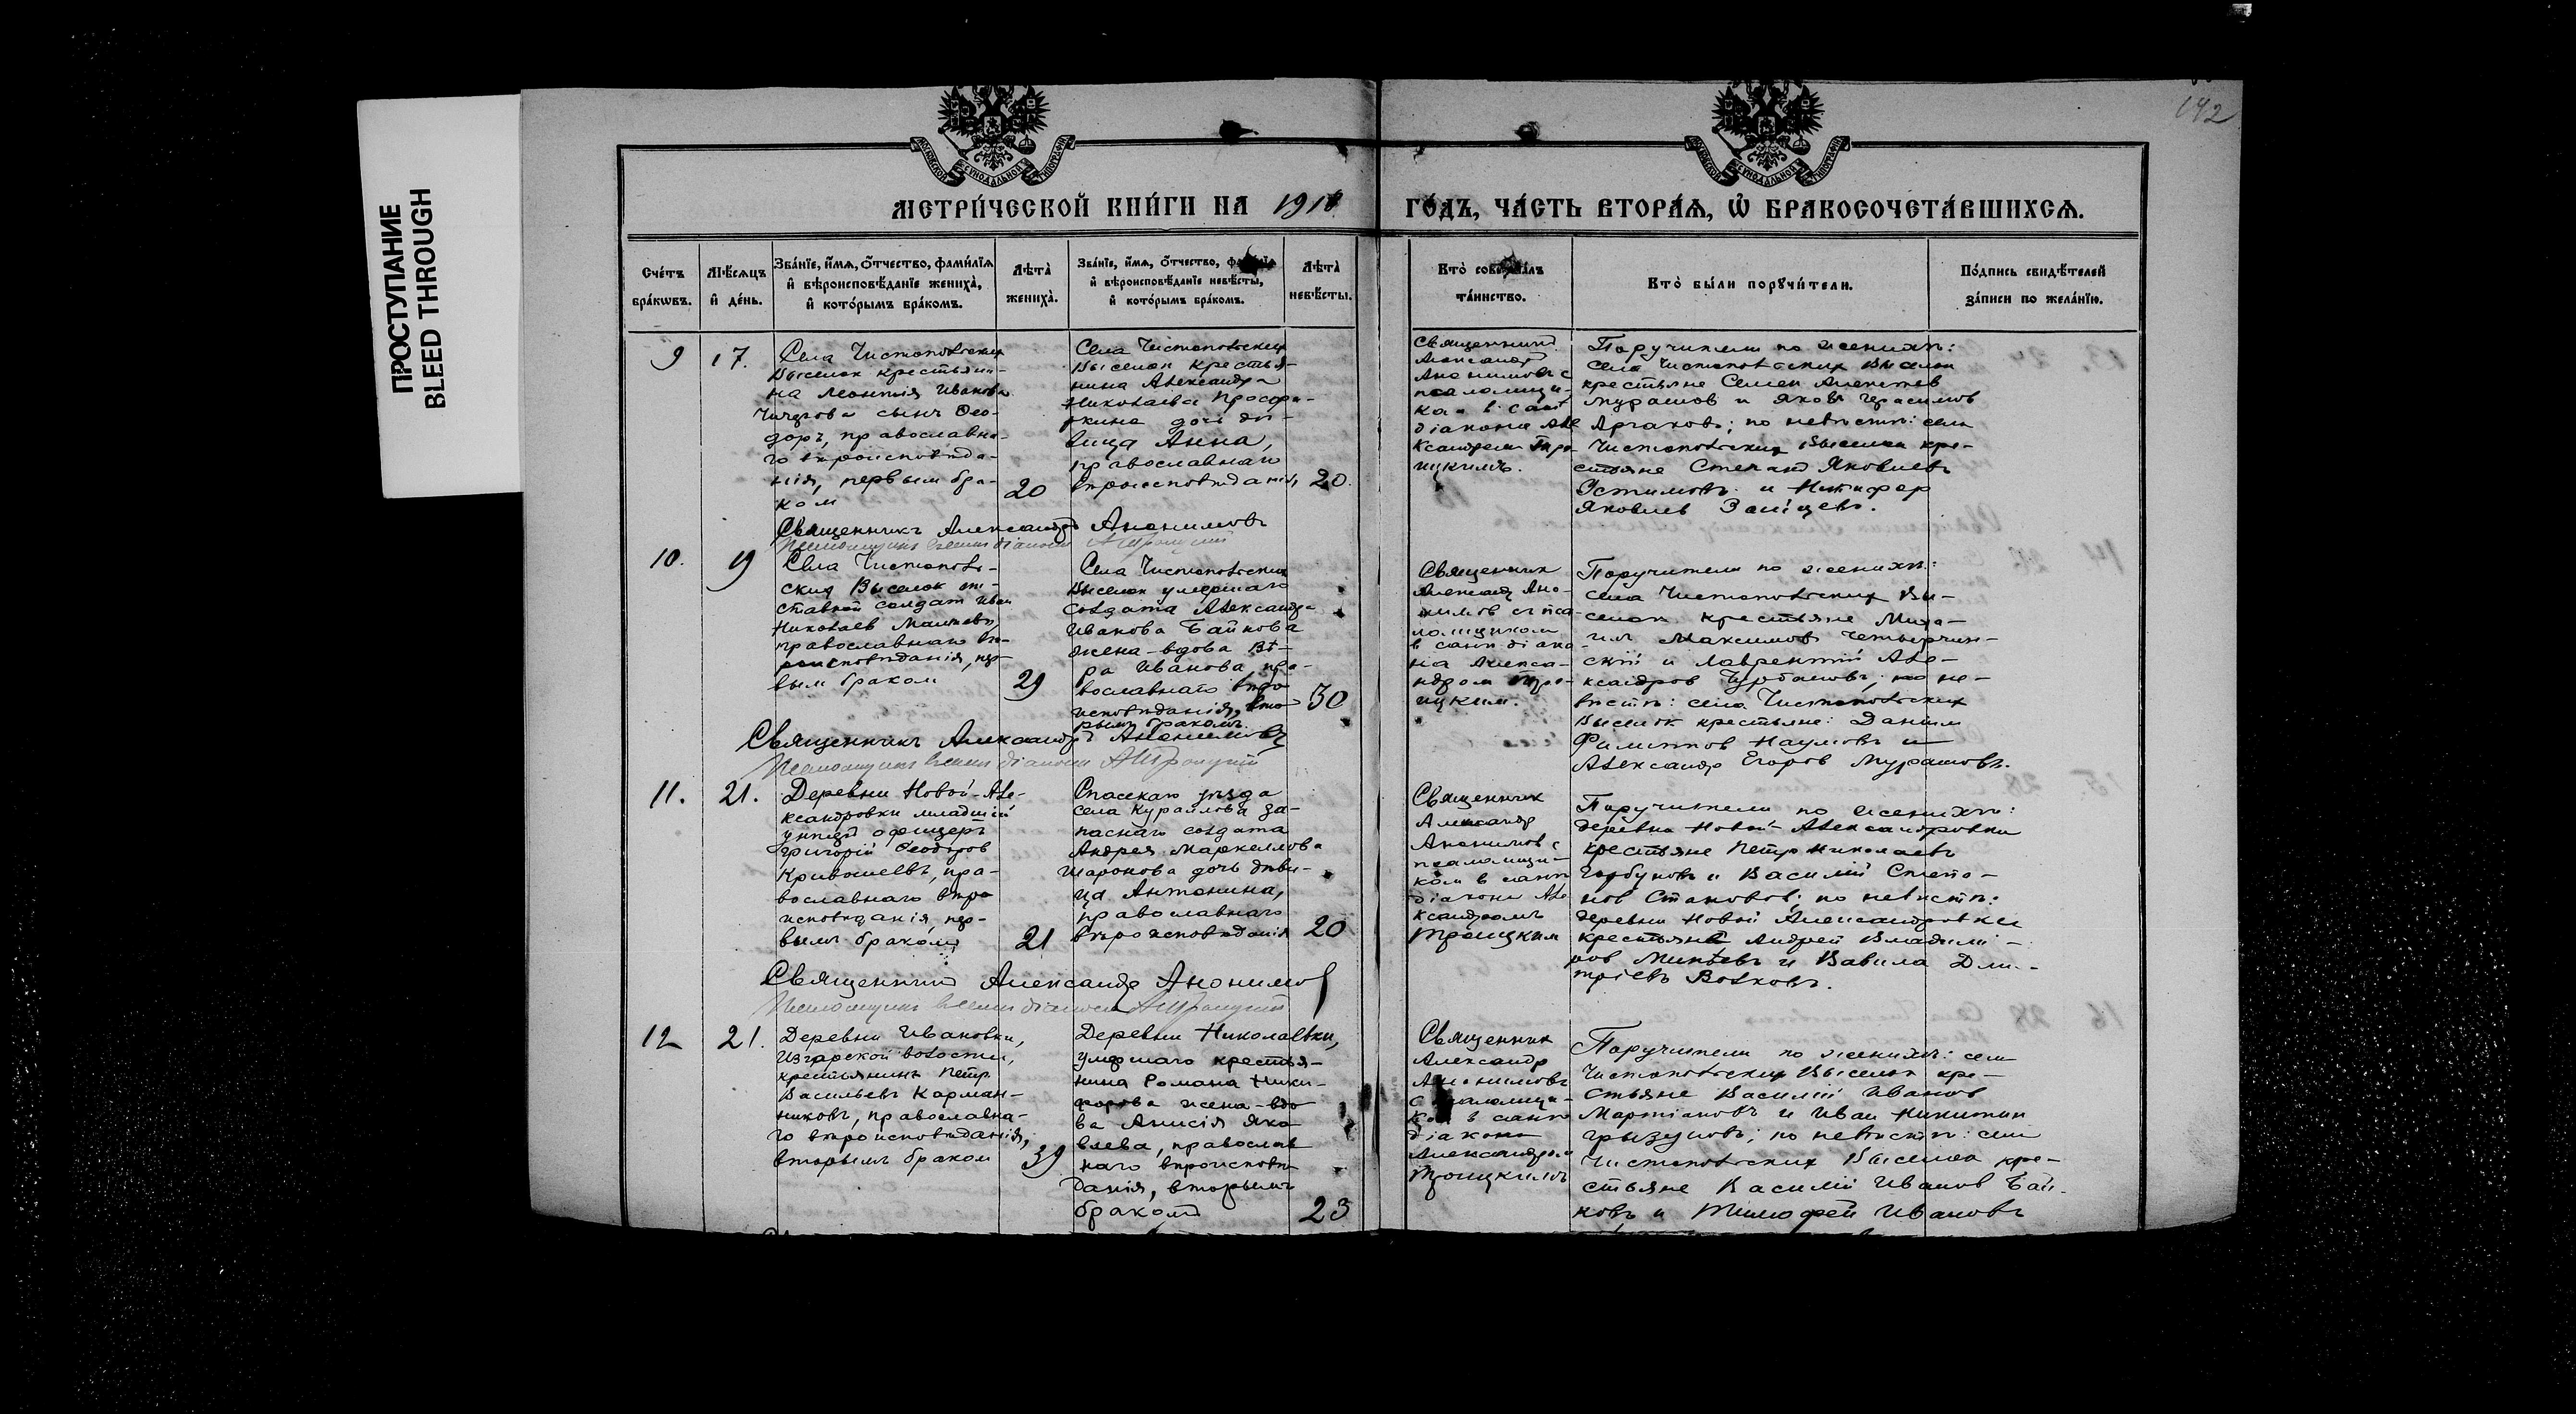 142
ПРОСТУПАНИЕ
BLEED THROUGH
МЕТРИ́ЧЕСКОЙ КНИ́ГИ НА 1918
ГО́ДЪ, ЧА́СТЬ ВТОРА́Я, Ѡ҆ БРАКОСОЧЕТА́ВШИХСЯ.
Сче́тъ бра́кѡвъ.
Мѣ́сѧцъ и҆ де́нь.
Зва́нїе, и҆́мѧ, ѻ҆́тчество, фами́лїѧ
и҆ вѣроисповѣ́данїе жениха̀,
и҆ кото́рымъ бра́комъ.
Лѣта̀ жениха̀.
Зва́нїе, и҆́мѧ, ѻ҆́тчество, фами́лїѧ
и҆ вѣроисповѣ́данїе невѣ́сты,
и҆ кото́рымъ бра́комъ.
Лѣта̀ невѣ́сты.
Кто̀ соверша́лъ
та́инство.
Кто̀ бы́ли порꙋчи́тели.
По́дпись свидѣ́телей
за́писи по жела́нїю.
9
17.
Села Чистопольских
Выселок крестьяни-
на Леонтія Иванова
сынъ Ѳео-
доръ, православна-
го вѣроисповѣда-
нія, первым бра-
ком
20
Села Чистопольских
Выселок крестья-
нина Александра
Николаева
дочь дѣ-
вица Анна,
православнаго
вѣроисповѣданія,
20.
Священникъ
Александръ
Анонимовъ с
псаломщи-
ком в санѣ
діакона Але
ксандром Тро-
ицкимъ.
Поручители по женихѣ:
села Чистопольских Выселок
крестьяне Семен Алексѣев
Мурашов и Яков Герасимов
по невѣстѣ: села
Чистопольских Выселок кре-
стьяне Степан Яковлев
Устимовъ и Никифор
Яковлев Зайцевъ.
Священникъ Александръ Анонимовъ
Псаломщикъ въ санѣ діакона А Троицкій
10.
19
Села Чистополь-
ских Выселок от-
ставной солдат Иван
Николаев
православнаго вѣ-
роисповѣданія, пер-
вым браком
29
Села Чистопольских
Выселок умершаго
солдата Александра
Иванова Байкова
жена-вдова Вѣ-
ра Иванова, пра-
вославнаго вѣро
исповѣданія, вто
рымъ бракомъ.
30
Священник
Александр Ано-
нимов съ пса-
ломщиком
в санѣ діако-
на Алекса-
ндром Тро-
ицким.
Поручители по женихѣ:
села Чистопольских Вы-
селок крестьяне Миха-
ил Максимов Четверчин-
скій и Лаврентій Але-
ксандров Турбановъ; по не-
вѣстѣ: села Чистопольских
Выселок крестьяне: Данил
Филиппов Наумовъ и
Александр Егоров Мурашовъ.
Священникъ Александръ Анонимовъ
Псаломщикъ въ санѣ діакона А Троицкій
11.
21.
Деревни Новой-Але-
ксандровки младшій
унтеръ офицеръ
Григорій Ѳеодоров
Кривошеевъ, пра-
вославнаго вѣро
исповѣданія, пер-
вымъ бракомъ
21
Спасскаго уѣзда
села Куралова за-
паснаго солдата
Андрея Маркеллова
Шаронова дочь дѣви-
ца Антонина,
православнаго
вѣроисповѣданія
20
Священник
Александр
Анонимов с
псаломщи-
ком в санѣ
діакона Але
ксандромъ
Троицким
Поручители по женихѣ:
деревни Новой-Александровки
крестьяне Петръ Николаевъ
Горбуновъ и Василій Степа-
нов Стаковов; по невѣстѣ:
деревни Новой Александровки
крестьяне Андрей Владимі-
ров Минѣевъ и Вавила Дми-
тріевъ Волковъ.
Священникъ Александръ Анонимов
Псаломщикъ въ санѣ діакона А Троицкій
12
21.
Деревни Ивановки,
Изгарской волости,
крестьянинъ Петръ
Васильевъ Карман-
никовъ, православна-
го вѣроисповѣданія,
вторымъ браком
39
Деревни Николаевки,
умершаго крестья-
нина Романа Ники-
форова жена-вдо
ва Анисія Яко
влева, православ
наго вѣроисповѣ-
данія, вторымъ
бракомъ
23
Священник
Александр
Анонимовъ
с псаломщи-
ком в санѣ
діакона
Александром
Троицкимъ
Поручители по женихѣ: села
Чистопольских Выселок кре-
стьяне Василій Иванов
Мартіановъ и Иван Никитин
Грызуновъ; по невѣстѣ: села
Чистопольских Выселок кре-
стьяне Василій Иванов Бай-
ковъ и Тимофей Ивановъ